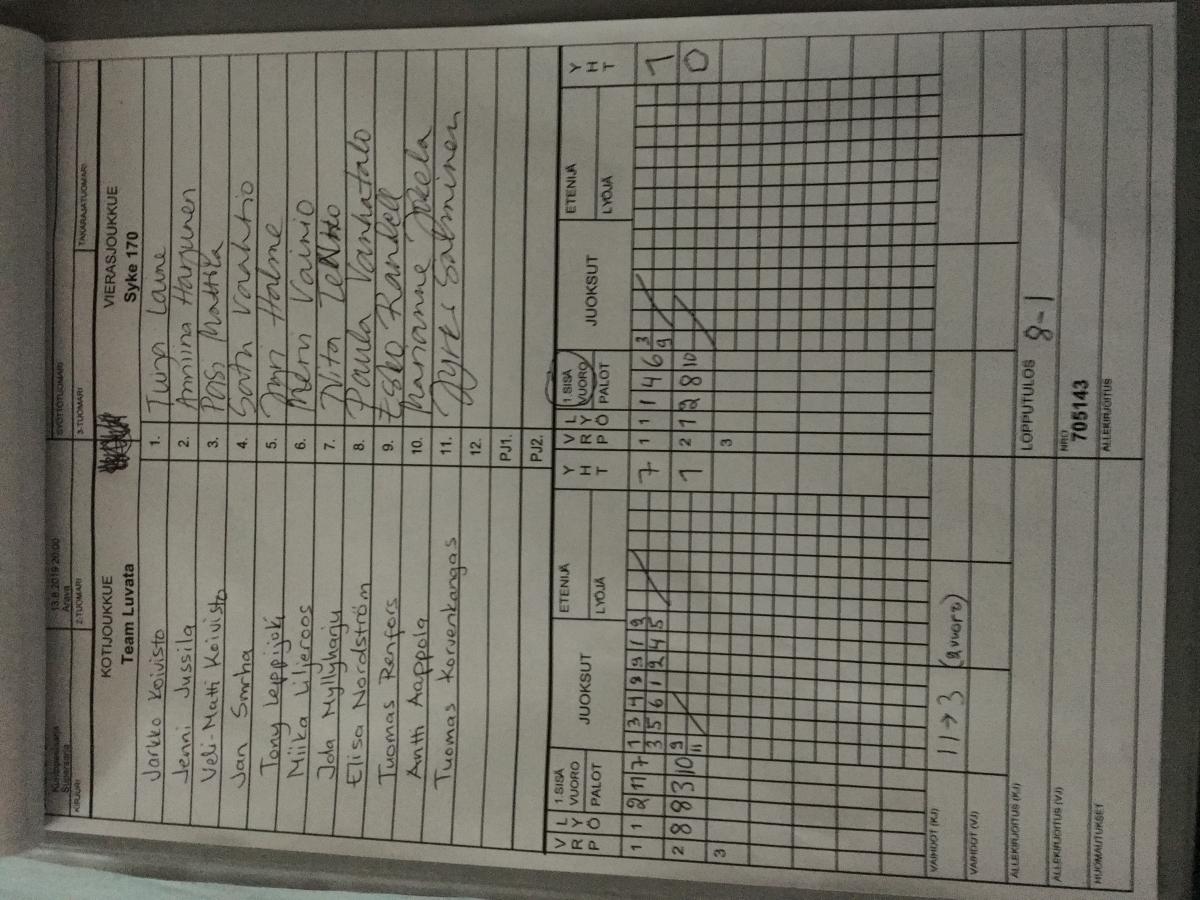 Kuntopesäpallo
Supersarja
13.8.2019 20:00
Arava
SYÖTTÖTUOMARI
KIRJURI
2-TUOMARI
3-TUOMARI
TAKARAJATUOMARI
KOTIJOUKKUE
VIERASJOUKKUE
Team Luvata
Syke 170
Jarkko Koivisto 1. Tuija Laine
Jenni Jussila 2. Anniina Harjunen
Veli-Matti Koivisto 3. Pasi Mattila
Jan Smrha 4. Satu Varahtio
Tony Leppijoki 5. Jmri Halme
Miika Liljeroos 6. Meru Vainio
Jola Myllyharju 7. Nita
Elisa Nordström 8. Paula Vanhatalo
Tuomas Renfors 9. Esko Randell
Antti Aappola 10. Marianne
Tuomas Korvenkangas 11. Jyrki Salminen
12.
PJ1.
PJ2.
V R P L Y Ö 1.SISÄ VUORO PALOT JUOKSUT ETENIJÄ LYÖJÄ Y H T V R P L Y Ö 1.SISÄ VUORO PALOT JUOKSUT ETENIJÄ LYÖJÄ Y H T
1 1 2 11 7 1 3 4 9 9 1 2 7 1 1 1 4 6 3 1
3 5 6 1 2 4 5 9
2 8 8 3 10 9 1 2 7 2 8 10 0
11
3 3
VAIHDOT (KJ) 11→3 (2 vuoro)
VAIHDOT (VJ)
ALLEKIRJOITUS (KJ) LOPPUTULOS 8-1
ALLEKIRJOITUS (VJ) NRO 705143
HUOMAUTUKSET ALLEKIRJOITUS